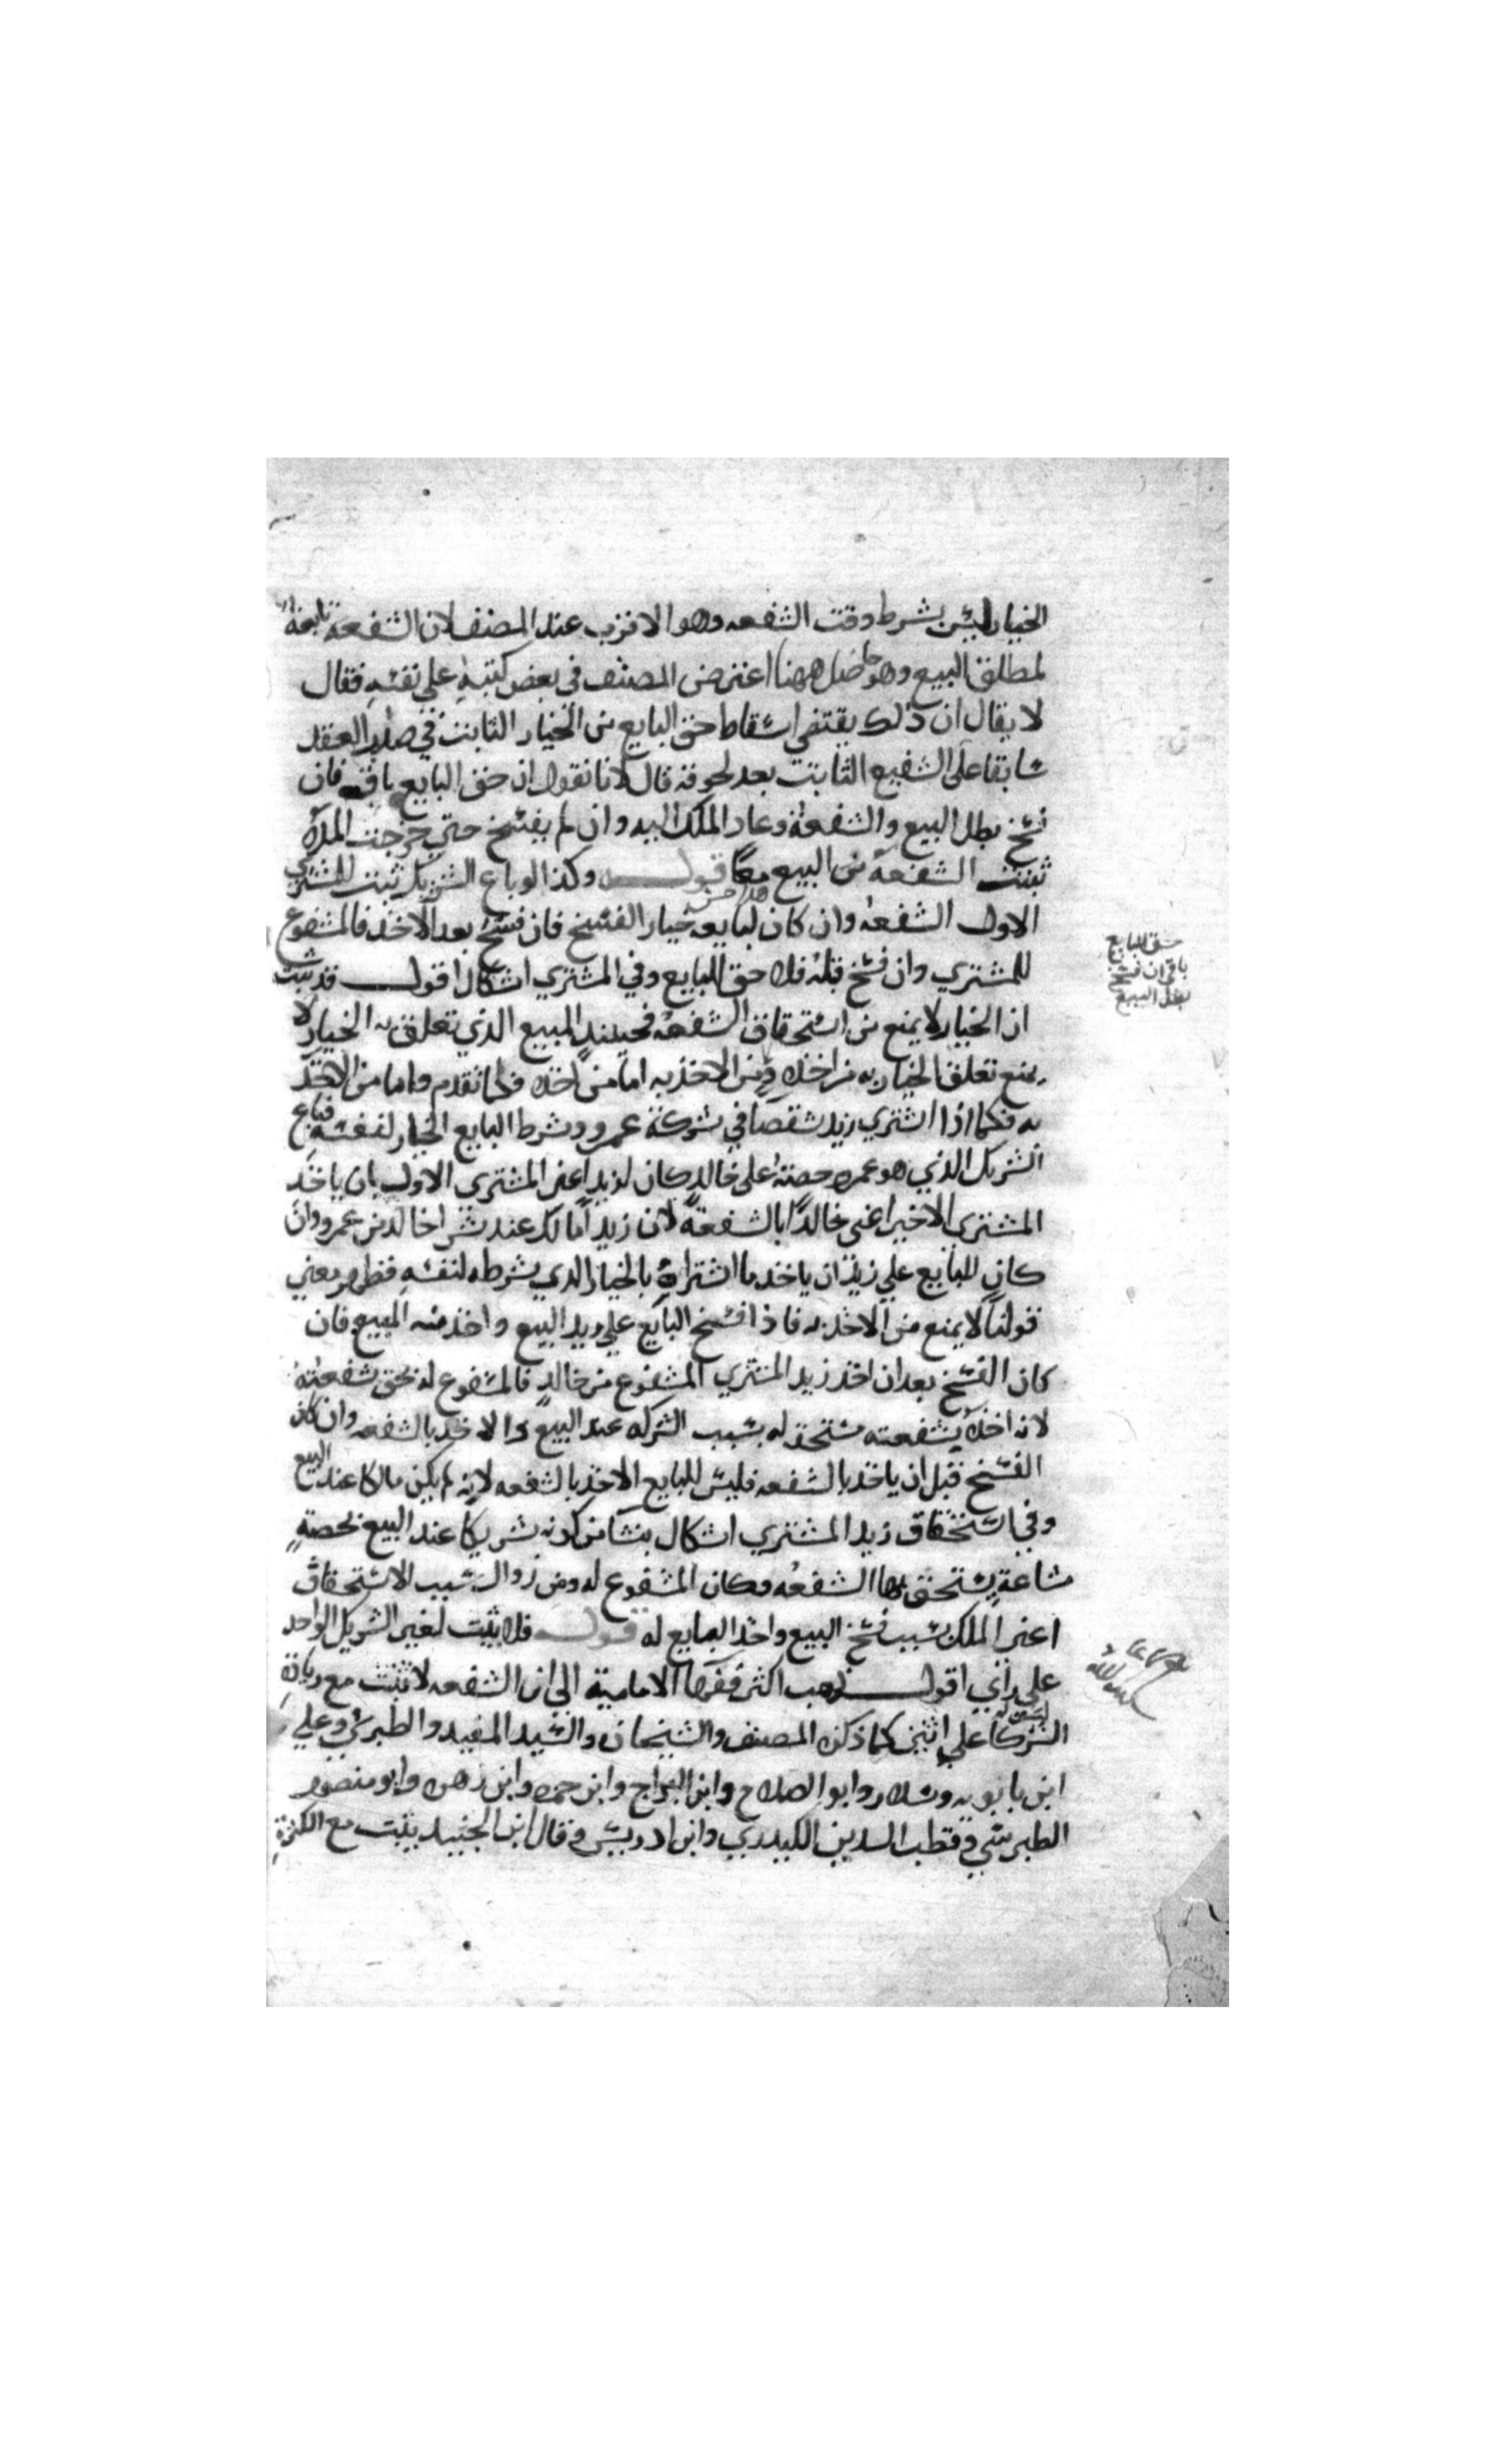 الخيار ليس بشرط وقت الشفعه وهو الاقرب عند المصنف لان الشفعة تابعة
لمطلق البيع وهو حاصل ههنا اعترض المصنف في بعض كتبه علي نفسه فقال
لا يقال ان ذلك يقتضي اسقاط حق البايع من الخيار الثابت في صلب العقد
سابقا علي الشفيع الثابت بعد لحوقه قال لانا نقول ان حق البايع باق فان
فسخ بطل البيع والشفعة وعاد الملك اليه وان لم يفسخ حتي خرجت المدة
ثبتت الشفعة من البيع معا قوله وكذا لو باع الشريك ثبتت للمشتري
الاول الشفعه وان كان لبايعه خيار الفسخ فان فسخ بعد الاخذ فالمشفوع
للمشتري وان فسخ قبله فلا حق للبايع وفي المشتري اشكال اقول قد ثبت
ان الخيار لا يمنع من استحقاق الشفعه فحينئذ المبيع الذي تعلق به الخيار لا
يمنع تعلق الخيار به من اخذه ومن الاخذ به اما من اخذه فلما تقدم واما من الاخذ
به فكما اذا اشتري زيد شقصا في شركة عمرو وشرط البايع الخيار لنفسه فباع
الشريك الذي هو عمرو حصته علي خالد كان لزيد اعني المشتري الاول بان ياخذ
المشتري الاخير اعني خالدا بالشفعة لان زيدا مالك عند شرا خالد من عمرو وان
كان للبايع علي زيد ان ياخذ ما اشتراه بالخيار الذي يشرطه لنفسه فظهر معني
قولنا لا يمنع من الاخذ به فاذا فسخ البايع علي زيد البيع واخذ منه المبيع فان
كان الفسخ بعد ان اخذ زيد المشتري المشفوع من خالد فالمشفوع له بحق شفعته
لانه اخذه بشفعته مستحقه له بسبب الشركه عند البيع والاخذ بالشفعه وان كان
الفسخ قبل ان ياخذ بالشفعه فليس للبايع الاخذ بالشفعه لانه لم يكن مالكا عند البيع
وفي استحقاق زيد المشتري اشكال ينشا من كونه شريكا عند البيع بحصة
مشاعة يستحق بها الشفعه فكان المشفوع له ومن زوال سبب الاستحقاق
اعني الملك بسبب فسخ البيع واخذ البايع له قوله فلا يثبت لغير الشريك الواحد
علي راي اقول ذهب اكثر فقها الامامية الي ان الشفعه لا تثبت مع زيادة
الشركا علي اثنين كما ذكره المصنف والشيخان والسيد المفيد والطبرسي وعلي
ابن بابويه وسلار وابو الصلاح وابن البراج وابن حمزه وابن زهره وابو منصور
الطبرسي وقطب الدين الكيدري وابن ادريس وقال ابن الجنيد يثبت مع الكثرة
حق البايع
باق ان فسخ
بطل البيع